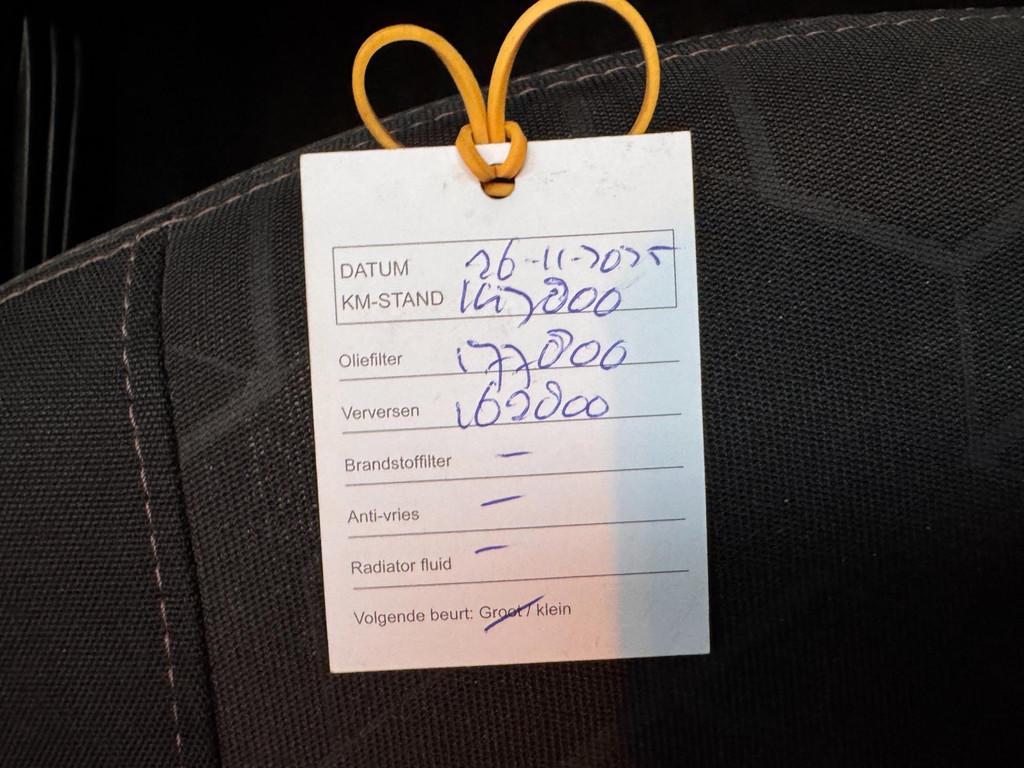 DATUM 26-11-2025
KM-STAND 147800
Oliefilter 177800
Verversen 162800
Brandstoffilter –
Anti-vries –
Radiator fluid –
Volgende beurt: Groot / klein